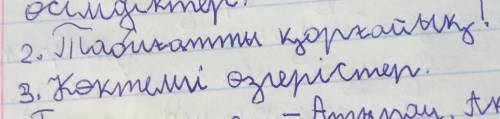 өсімдіктер.
2. Табиғатты қорғайық!
3. Көктемгі өзгерістер.
– Атырау,